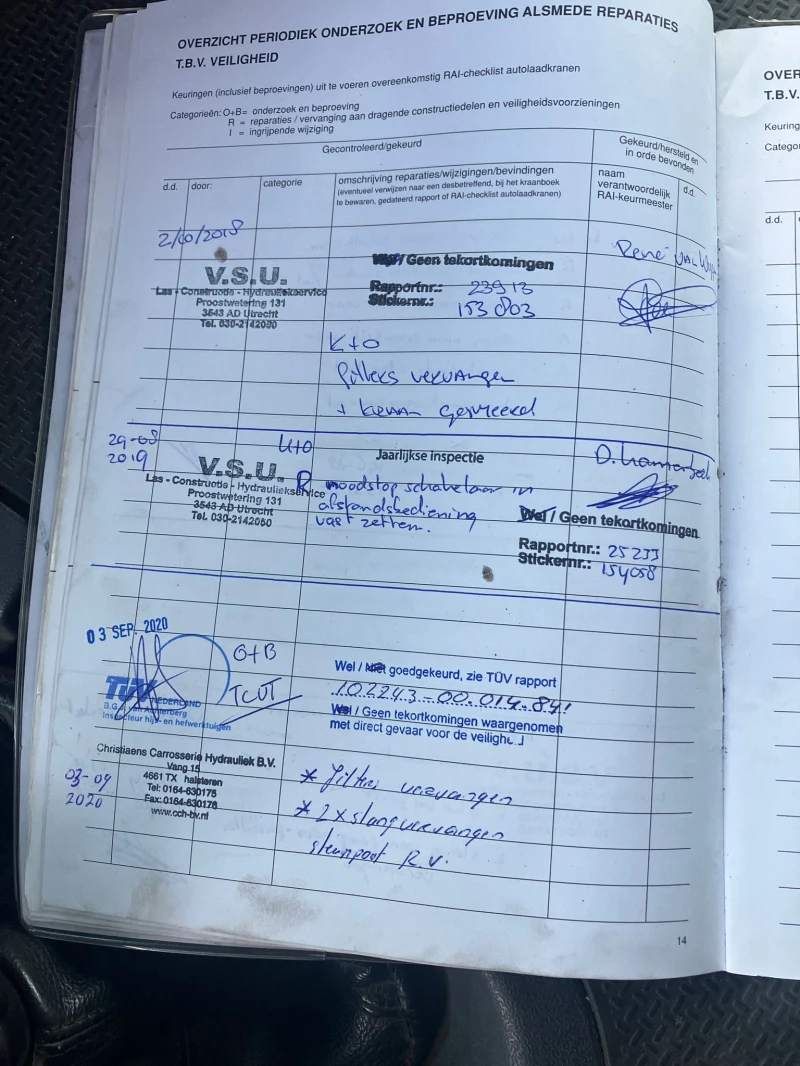 OVERZICHT PERIODIEK ONDERZOEK EN BEPROEVING ALSMEDE REPARATIES
T.B.V. VEILIGHEID
Keuringen (inclusief beproevingen) uit te voeren overeenkomstig RAI-checklist autolaadkranen
Categorieën: O+B= onderzoek en beproeving
R = reparaties / vervanging aan dragende constructiedelen en veiligheidsvoorzieningen
I = ingrijpende wijziging
Gecontroleerd/gekeurd
Gekeurd/hersteld en
in orde bevonden
d.d. door: categorie
omschrijving reparaties/wijzigingen/bevindingen
(eventueel verwijzen naar een desbetreffend, bij het kraanboek
te bewaren, gedateerd rapport of RAI-checklist autolaadkranen)
naam
verantwoordelijk
RAI-keurmeester
d.d.
2/10/2018
V.S.U.
Las - Constructie - Hydrauliekservice
Proostwetering 131
3543 AD Utrecht
Tel. 030-2142060
Wel / Geen tekortkomingen
Rapportnr.: 23913
Stickernr.: 153803
René van
K+O
filters vervangen
+ kraan gesmeerd
29-08
2019
K+O
Jaarlijkse inspectie
V.S.U.
Las - Constructie - Hydrauliekservice
Proostwetering 131
3543 AD Utrecht
Tel. 030-2142060
R noodstop schakelaar in
afstandsbediening
vast zetten.
D.
Wel / Geen tekortkomingen
Rapportnr.: 25233
Stickernr.: 154058
03 SEP. 2020
O+B
TCVT
TÜV NEDERLAND
Inspecteur hijs- en hefwerktuigen
Wel / Niet goedgekeurd, zie TÜV rapport
Wel / Geen tekortkomingen waargenomen
met direct gevaar voor de veilighe
Christiaens Carrosserie Hydrauliek B.V.
Vang 15
4661 TX halsteren
Tel: 0164-630175
Fax: 0164-630176
www.cch-bv.nl
03-09
2020
* Filters vervangen
* 2x slang vervangen
steunpoot R.V.
14
OVER
T.B.V.
Keuring
Catego
d.d.